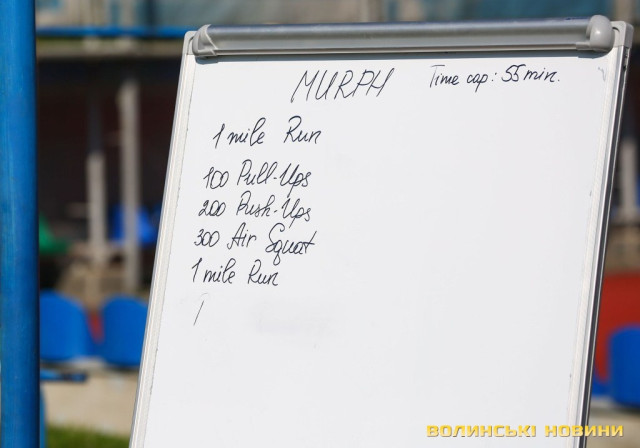 MURPH Time cap: 55 min.
1 mile Run
100 Pull-Ups
200 Push-Ups
300 Air Squat
1 mile Run
ВОЛИНСЬКІ НОВИНИ